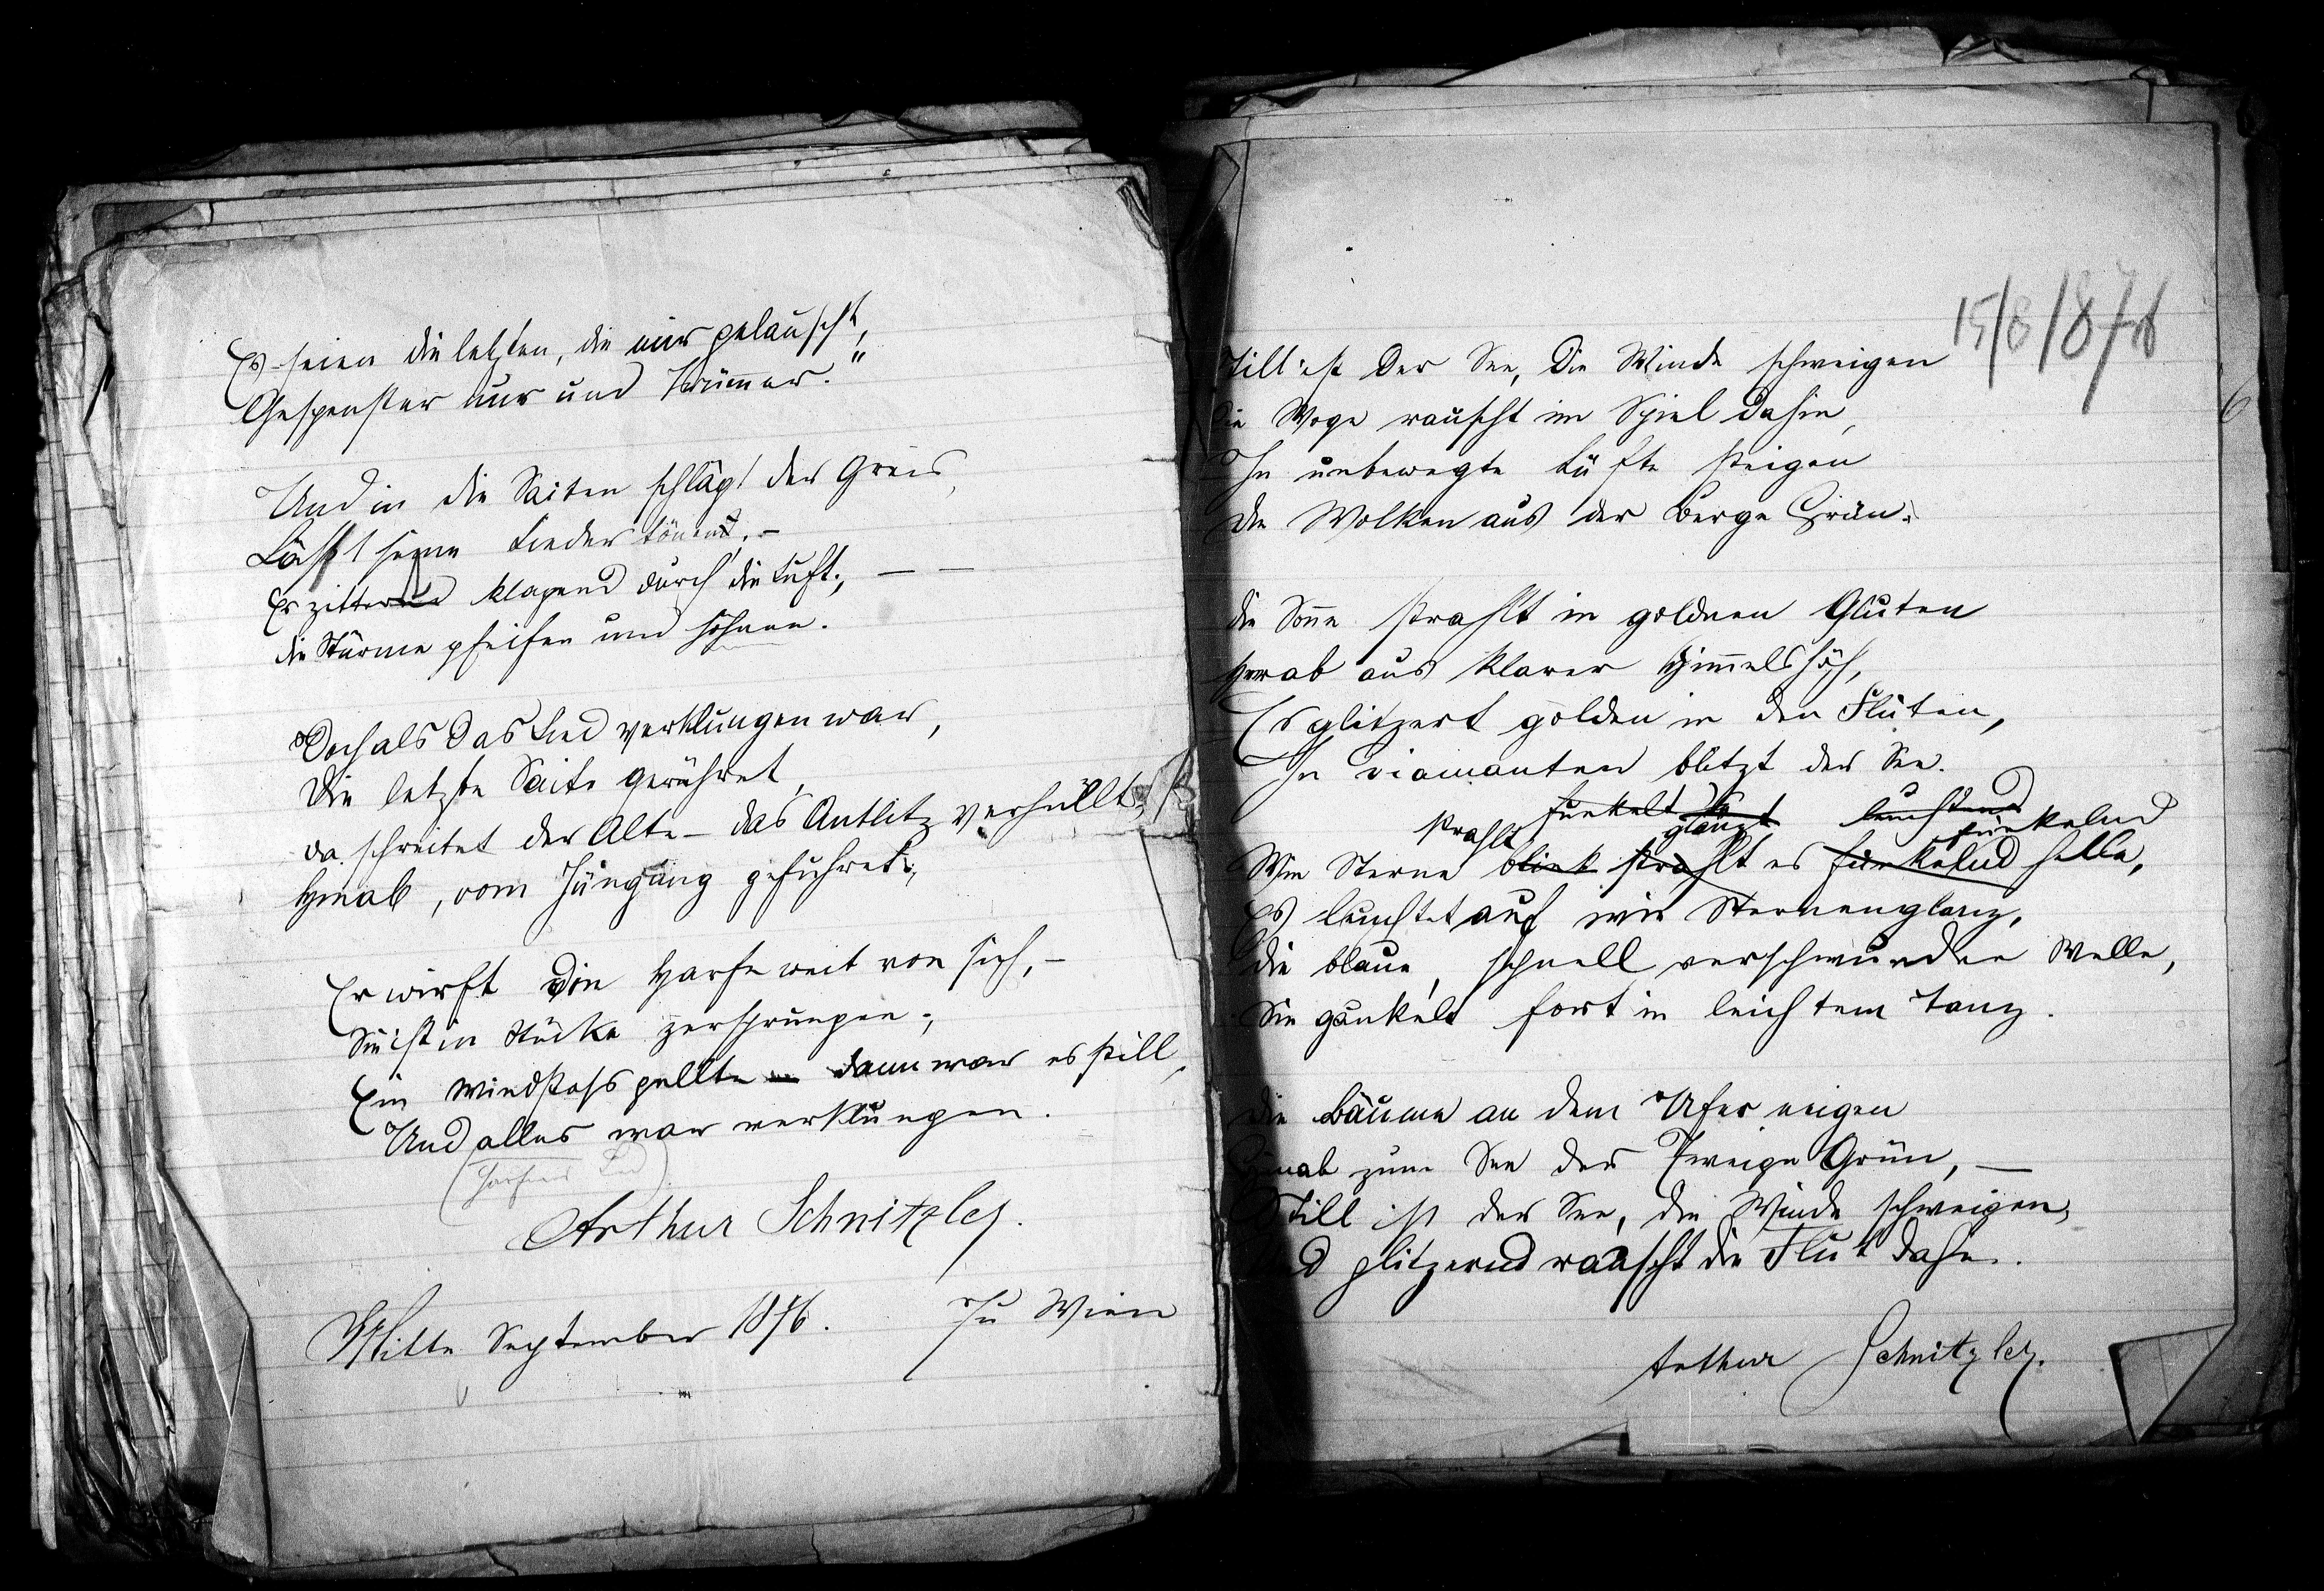 Es seien die letzten, die mir gelauscht,
Gespenster nur und Trümmer."
Und in die Saiten schlägt der Greis,
Läßt seine Lieder tönen. –
Er zittert klagend durch die Luft; – –
die Stürme pfeifen und höhnen.
Doch als das Lied verklungen war,
Die letzte Saite gerühret,
da schreitet der Alte – das Antlitz verhüllt,
Hinab, vom Jüngling geführet;
Er wirft die Harfe weit von sich, –
Sie ist in Stücke zersprungen;
Ein Windstoß gellte – dann war es still,
Und alles war verklungen.
(Harfners Lied)
Arthur Schnitzler.
Mitte September 1876. Zu Wien
15/8/876
6
Still ist der See, die Winde schweigen
Die Woge rauscht im Spiel dahin,
In unbewegte Lüfte steigen
Die Wolken aus der Berge Grün.
die Sonne strahlt in goldnen Gluten
herab aus klarer Himmelshöh,
Es glitzert golden in den Fluten,
In Diamanten blitzt der See.
strahlt funkelt glänzt leuchtend funkelnd
Wie Sterne blink strahlt es funkelnd helle,
Es leuchtet auf wie Sternenglanz,
die blaue, schnell verschwundne Welle,
Sie gaukelt fort in leichtem Tanz.
Die Bäume an dem Ufer neigen
Hinab zum See der Zweige Grün, –
Still ist der See, die Winde schweigen,
Und glitzernd rauscht die Flut dahin.
Arthur Schnitzler.